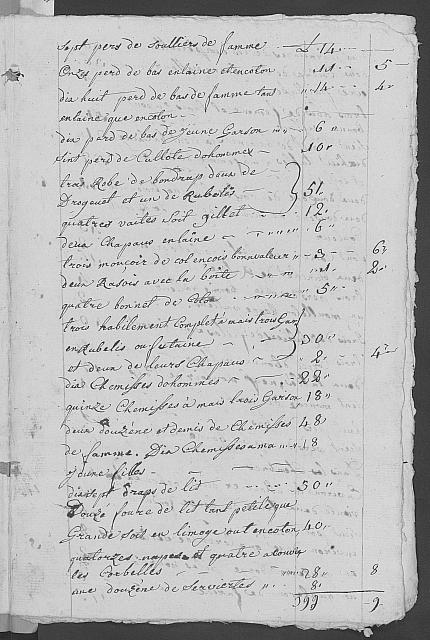 Sept pers de soulliers de famme — £ 14 ..
Onze perd de bas enlaine etencoton .. 11 .. 5
dix huit perd de bas de famme tant .. 14 .. 4
enlaine que encoton -
dix perd de bas de Jeune Garson .. 6 "
Sint perd de Cullote dohommex - 10 "
trois Robe de bondrap deux de
Drogeuet et un de Rubelös - } 51 "
quatres vaites soit gillet - 12 "
deux Chapaux enlaine - 6 "
trois moucoir de col encois bonvaleur - 3 " 6
deux Rasois avec la boîte " 1 " 2
quatre bonnet de Coton - 5 "
trois habilement Complet à mais trois Gar
en Rubelis ou futaine - } 30 "
et deux de leurs Chapaux - 2 " 4
dix Chemisses dohommes - 22 "
quinze Chemisses à mais trois Garson 18 "
deux douzéne et demis de Chemisses 48
de famme. Dix Chemisses a ma .. 18
Jeune filles -
dixsept draps de lit - 50 "
Douze foure de lit tant petite que
Grande soit en limoge ou encoton 40 "
quatorzes napes et quatre a couvrir
les Corbelles - 28 " 8
une douzéne de serviettes " 8 "
399 9